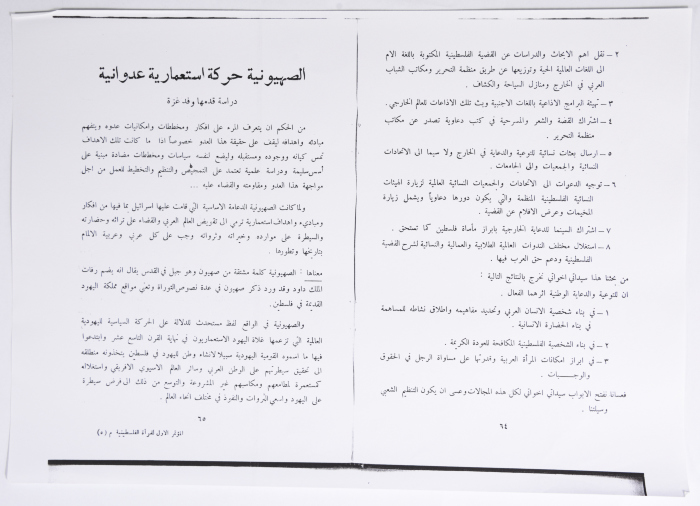 ٢ – نقل اهم الابحاث والدراسات عن القضية الفلسطينية المكتوبة باللغة الام
الى اللغات العالمية الحية وتوزيعها عن طريق منظمة التحرير ومكاتب الشباب
العربي في الخارج ومنازل السياحة والكشاف .
٣ – تهيئة البرامج الاذاعية باللغات الاجنبية وبث تلك الاذاعات للعالم الخارجي .
٤ – اشتراك القصة والشعر والمسرحية في كتب دعاوية تصدر عن مكاتب
منظمة التحرير .
٥ – ارسال بعثات نسائية للتوعية والدعاية في الخارج ولا سيما الى الاتحادات
النسائية والجمعيات والى الجامعات .
٦ – توجيه الدعوات الى الاتحادات والجمعيات النسائية العالمية لزيارة الهيئات
النسائية الفلسطينية المنظمة والتي يكون دورها دعاوياً ويشمل زيارة
المخيمات وعرض الافلام عن القضية .
٧ – اشتراك السينما للدعاية الخارجية بابراز مأساة فلسطين كما تستحق .
٨ – استغلال مختلف الندوات العالمية الطلابية والعمالية والنسائية لشرح القضية
الفلسطينية ودعم حق العرب فيها .
من بحثنا هذا سيداتي اخواتي نخرج بالنتائج التالية :
ان للتوعية والدعاية الوطنية اثرهما الفعال .
١ – في بناء شخصية الانسان العربي وتحديد مفاهيمه واطلاق نشاطه للمساهمة
في بناء الحضارة الانسانية .
٢ – في بناء الشخصية الفلسطينية المكافحة للعودة الكريمة .
٣ – في ابراز امكانات المرأة العربية وقدرتها على مساواة الرجل في الحقوق
والواجبات .
فعسانا نفتح الابواب سيداتي اخواتي لكل هذه المجالات وعسى ان يكون التنظيم الشعبي
وسيلتنا .
٦٤
الصهيونية حركة استعمارية عدوانية
دراسة قدمها وفد غزة
من الحكم ان يتعرف المرء على افكار ومخططات وامكانيات عدوه ويتفهم
مبادئه واهدافه ليقف على حقيقة هذا العدو خصوصاً اذا ما كانت تلك الاهداف
تمس كيانه ووجوده ومستقبله وليضع لنفسه سياسات ومخططات مضادة مبنية على
أسس سليمة ودراسة علمية تعتمد على التمحيص والتنظيم والتخطيط للعمل من اجل
مواجهة هذا العدو ومقاومته والقضاء عليه ...
ولما كانت الصهيونية الدعامة الاساسية التي قامت عليها اسرائيل بما فيها من افكار
ومبادىء واهداف استعمارية ترمي الى تقويض العالم العربي والقضاء على تراثه وحضارته
والسيطرة على موارده وخيراته وثرواته وجب على كل عربي وعربية الالمام
بتاريخها وتطورها .
معناها : الصهيونية كلمة مشتقة من صهيون وهو جبل في القدس يقال انه يضم رفات
الملك داود وقد ورد ذكر صهيون في عدة نصوص التوراة وتعني مواقع مملكة اليهود
القديمة في فلسطين .
والصهيونية في الواقع لفظ مستحدث للدلالة على الحركة السياسية لليهودية
العالمية التي تزعمها غلاة اليهود الاستعماريون في نهاية القرن التاسع عشر وابتدعوا
فيها ما اسموه القومية اليهودية سبيلا لانشاء وطن لليهود في فلسطين يتخذونه منطلقه
الى تحقيق سيطرتهم على الوطن العربي وسائر العالم الاسيوي الافريقي واستغلاله
كمستعمرة لمطامعهم ومكاسبهم غير المشروعة والتوسع من ذلك الى فرض سيطرة
على اليهود واسعي الثروات والنفوذ في مختلف انحاء العالم .
٦٥
المؤتمر الاول للمرأة الفلسطينية م (٥)